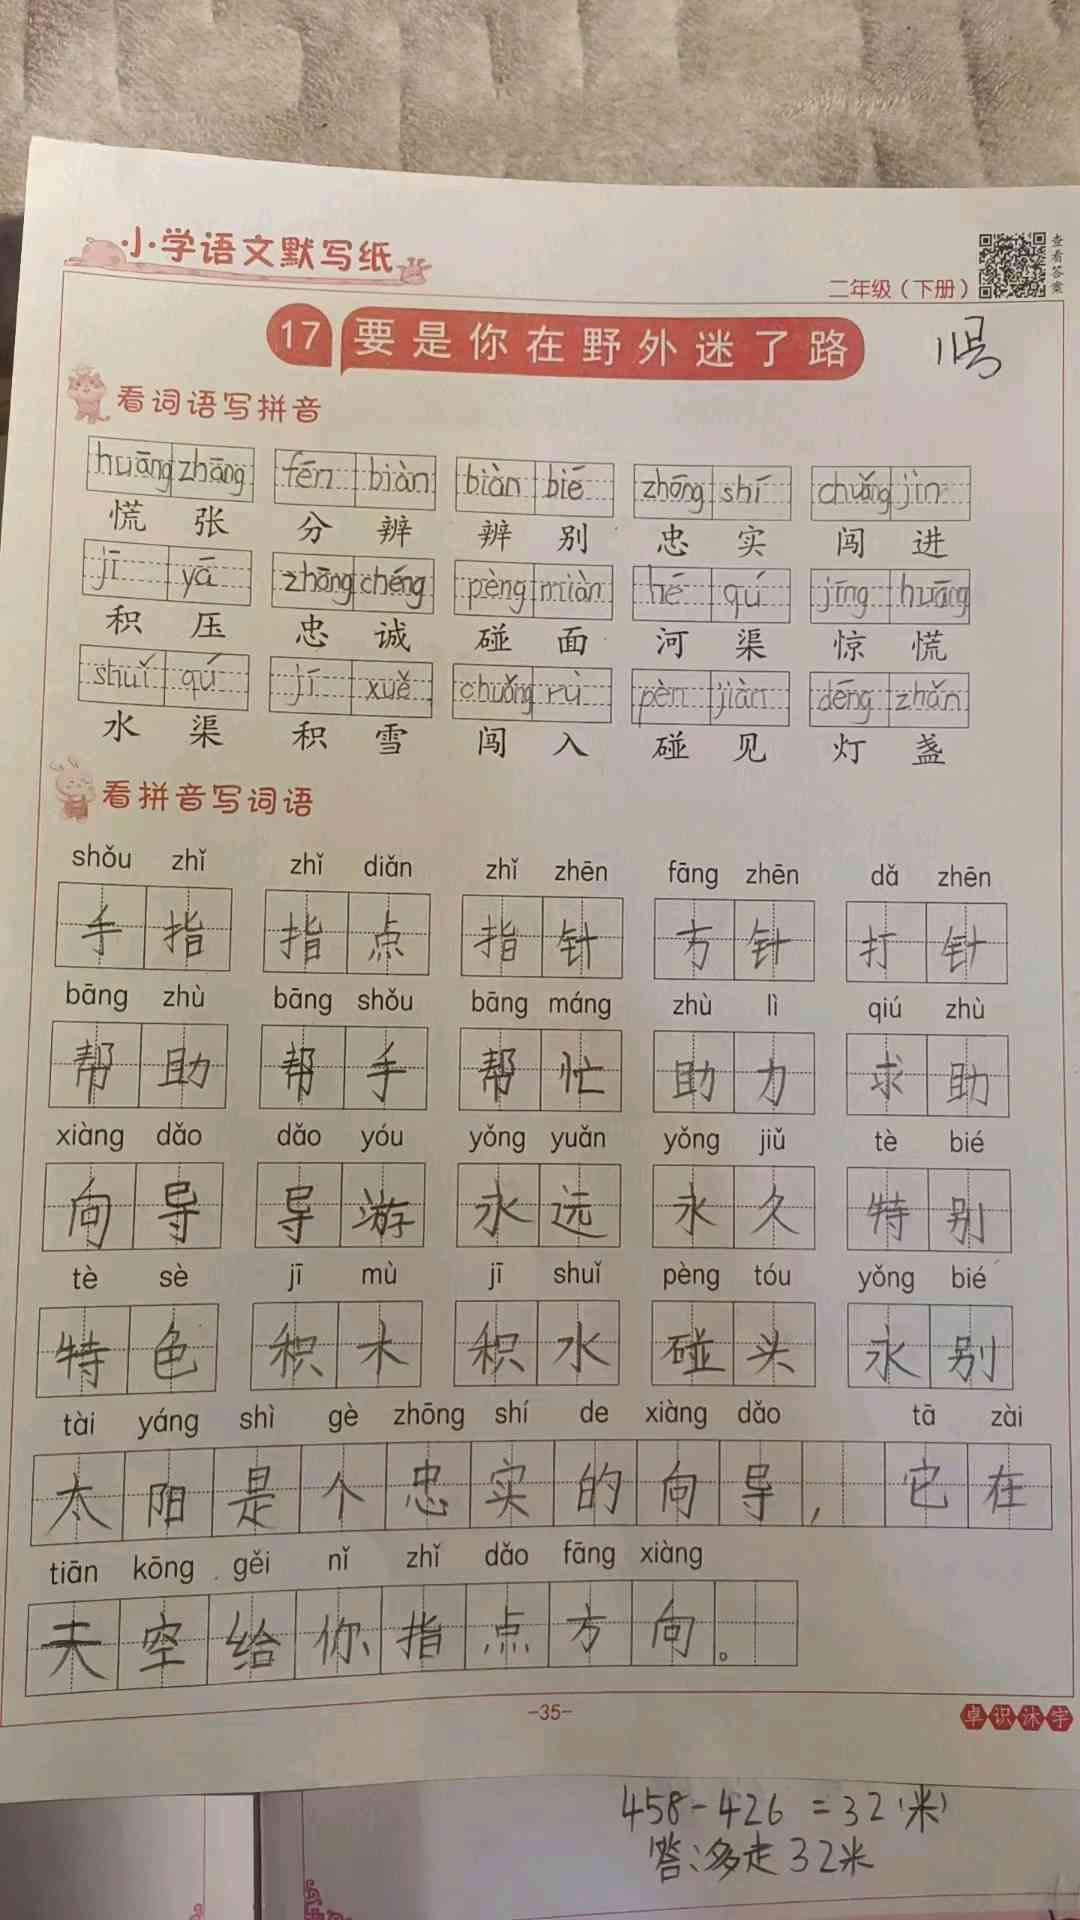 小学语文默写纸
查看答案
二年级（下册）
17 要是你在野外迷了路
11号
看词语写拼音
huāng zhāng fēn biàn biàn bié zhōng shí chuǎng jìn
慌 张 分 辨 辨 别 忠 实 闯 进
jī yā zhōng chéng pèng miàn hé qú jīng huāng
积 压 忠 诚 碰 面 河 渠 惊 慌
shuǐ qú jī xuě chuǎng rù pèn jiàn dēng zhǎn
水 渠 积 雪 闯 入 碰 见 灯 盏
看拼音写词语
shǒu zhǐ zhǐ diǎn zhǐ zhēn fāng zhēn dǎ zhēn
手 指 指 点 指 针 方 针 打 针
bāng zhù bāng shǒu bāng máng zhù lì qiú zhù
帮 助 帮 手 帮 忙 助 力 求 助
xiàng dǎo dǎo yóu yǒng yuǎn yǒng jiǔ tè bié
向 导 导 游 永 远 永 久 特 别
tè sè jī mù jī shuǐ pèng tóu yǒng bié
特 色 积 木 积 水 碰 头 永 别
tài yáng shì gè zhōng shí de xiàng dǎo tā zài
太 阳 是 个 忠 实 的 向 导 ， 它 在
tiān kōng gěi nǐ zhǐ dǎo fāng xiàng
天 空 给 你 指 点 方 向 。
-35-
卓识沐字
458-426 =32(米)
答:多走32米